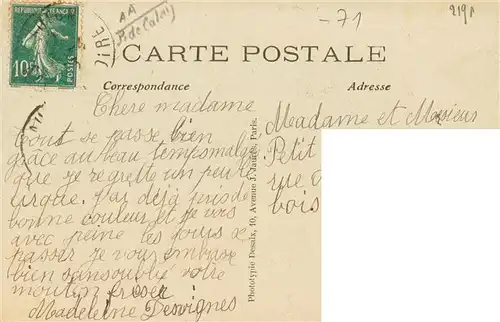 -71
2191
AA
P. de Calais
REPUBLIQUE FRANCAISE
10c
POSTES
AIRE
CARTE POSTALE
Correspondance
Adresse
Chere madame
Tout se passe bien
grâce au beau temps malgr
que je regrette un peu le
cirque. J'ai déjà pris de
bonne couleur et je vois
avec peine les jours se
passer je vous embrasse
bien sans oublié votre
mouton frisée
Madeleine Desvignes
Madame et Monsieur
Petit
rue
bois
Phototypie Desaix, 10, Avenue J. Jaurès, Paris.